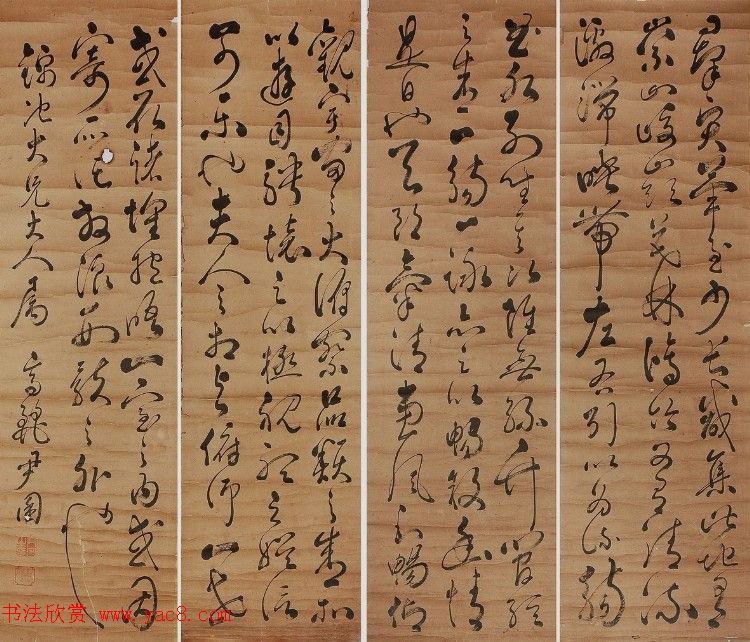 群賢畢至少長咸集此地有
崇山峻嶺茂林脩竹又有清流
激湍映帶左右引以為流觴
曲水列坐其次雖無絲竹管絃
之盛一觴一詠亦足以暢敘幽情
是日也天朗氣清惠風和暢仰
觀宇宙之大俯察品類之盛所
以遊目騁懷足以極視聽之娛信
可樂也夫人之相與俯仰一世
或取諸懷抱悟言一室之內或因
寄所託放浪形骸之外
池大兄大人屬
书法欣赏 www.yac8.com